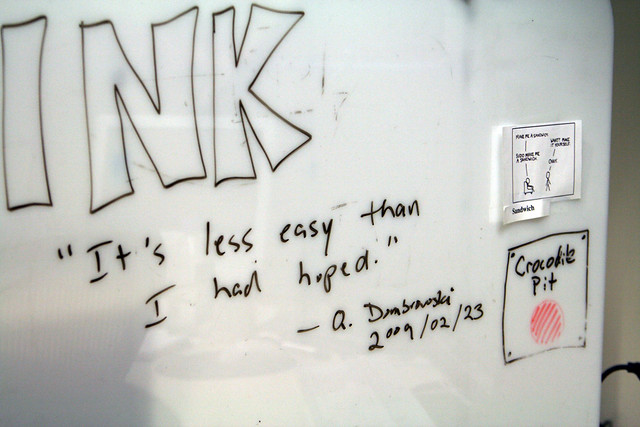 INK
"It's less easy than
I had hoped."
— a. Dombrowski
2009/02/23
MAKE ME A SANDWICH.
WHAT? MAKE
IT YOURSELF.
SUDO MAKE ME
A SANDWICH.
OKAY.
Sandwich
Crocodile
Pit